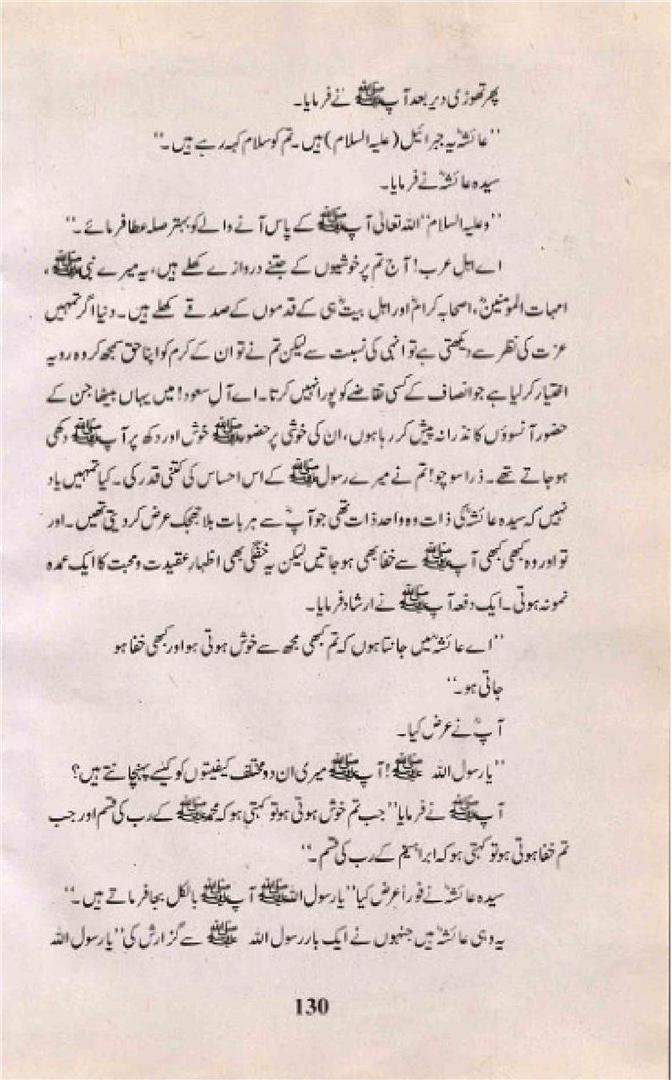 پھر تھوڑی دیر بعد آپ ﷺ نے فرمایا۔
’’عائشہؓ یہ جبرائیل (علیہ السلام) ہیں۔ تم کو سلام کہہ رہے ہیں۔‘‘
سیدہ عائشہؓ نے فرمایا۔
’’وعلیہ السلام‘‘ اللہ تعالیٰ آپ ﷺ کے پاس آنے والے کو بہتر صلہ عطا فرمائے۔‘‘
اے اہل عرب! آج تم پر خوشیوں کے جتنے دروازے کھلے ہیں، یہ میرے نبی ﷺ،
امہات المومنینؓ، اصحابہ کرامؓ اور اہل بیتؓ ہی کے قدموں کے صدقے کھلے ہیں۔ دنیا اگر تمہیں
عزت کی نظر سے دیکھتی ہے تو انہی کی نسبت سے لیکن تم نے تو ان کے کرم کو اپنا حق سمجھ کر وہ رویہ
اختیار کر لیا ہے جو انصاف کے کسی تقاضے کو پورا نہیں کرتا۔ اے آلِ سعود! میں یہاں بیٹھا جن کے
حضور آنسوؤں کا نذرانہ پیش کر رہا ہوں، ان کی خوشی پر حضور ﷺ خوش اور دکھ پر آپ ﷺ دکھی
ہو جاتے تھے۔ ذرا سوچو! تم نے میرے رسول ﷺ کے اس احساس کی کتنی قدر کی۔ کیا تمہیں یاد
نہیں کہ سیدہ عائشہؓ کی ذات وہ واحد ذات تھی جو آپؐ سے ہر بات بلا جھجک عرض کر دیتی تھیں۔ اور
تو اور وہ کبھی کبھی آپ ﷺ سے خفا بھی ہو جاتیں لیکن یہ خفگی بھی اظہارِ عقیدت و محبت کا ایک عمدہ
نمونہ ہوتی۔ ایک دفعہ آپ ﷺ نے ارشاد فرمایا۔
’’اے عائشہؓ میں جانتا ہوں کہ تم کبھی مجھ سے خوش ہوتی ہو اور کبھی خفا ہو
جاتی ہو۔‘‘
آپؓ نے عرض کیا۔
’’یا رسول اللہ ﷺ! آپ ﷺ میری ان دو مختلف کیفیتوں کو کیسے پہنچانتے ہیں؟
آپ ﷺ نے فرمایا ’’جب تم خوش ہوتی ہو تو کہتی ہو کہ محمد ﷺ کے رب کی قسم اور جب
تم خفا ہوتی ہو تو کہتی ہو کہ ابراہیمؑ کے رب کی قسم۔‘‘
سیدہ عائشہؓ نے فوراً عرض کیا ’’یا رسول اللہ ﷺ آپ ﷺ بالکل بجا فرماتے ہیں۔‘‘
یہ وہی عائشہؓ ہیں جنہوں نے ایک بار رسول اللہ ﷺ سے گزارش کی ’’یا رسول اللہ
130